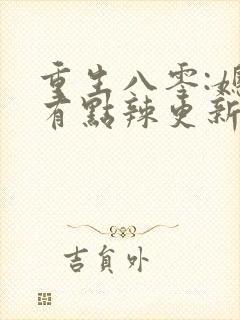 重生八零:媳
有點辣更新
吉貟外